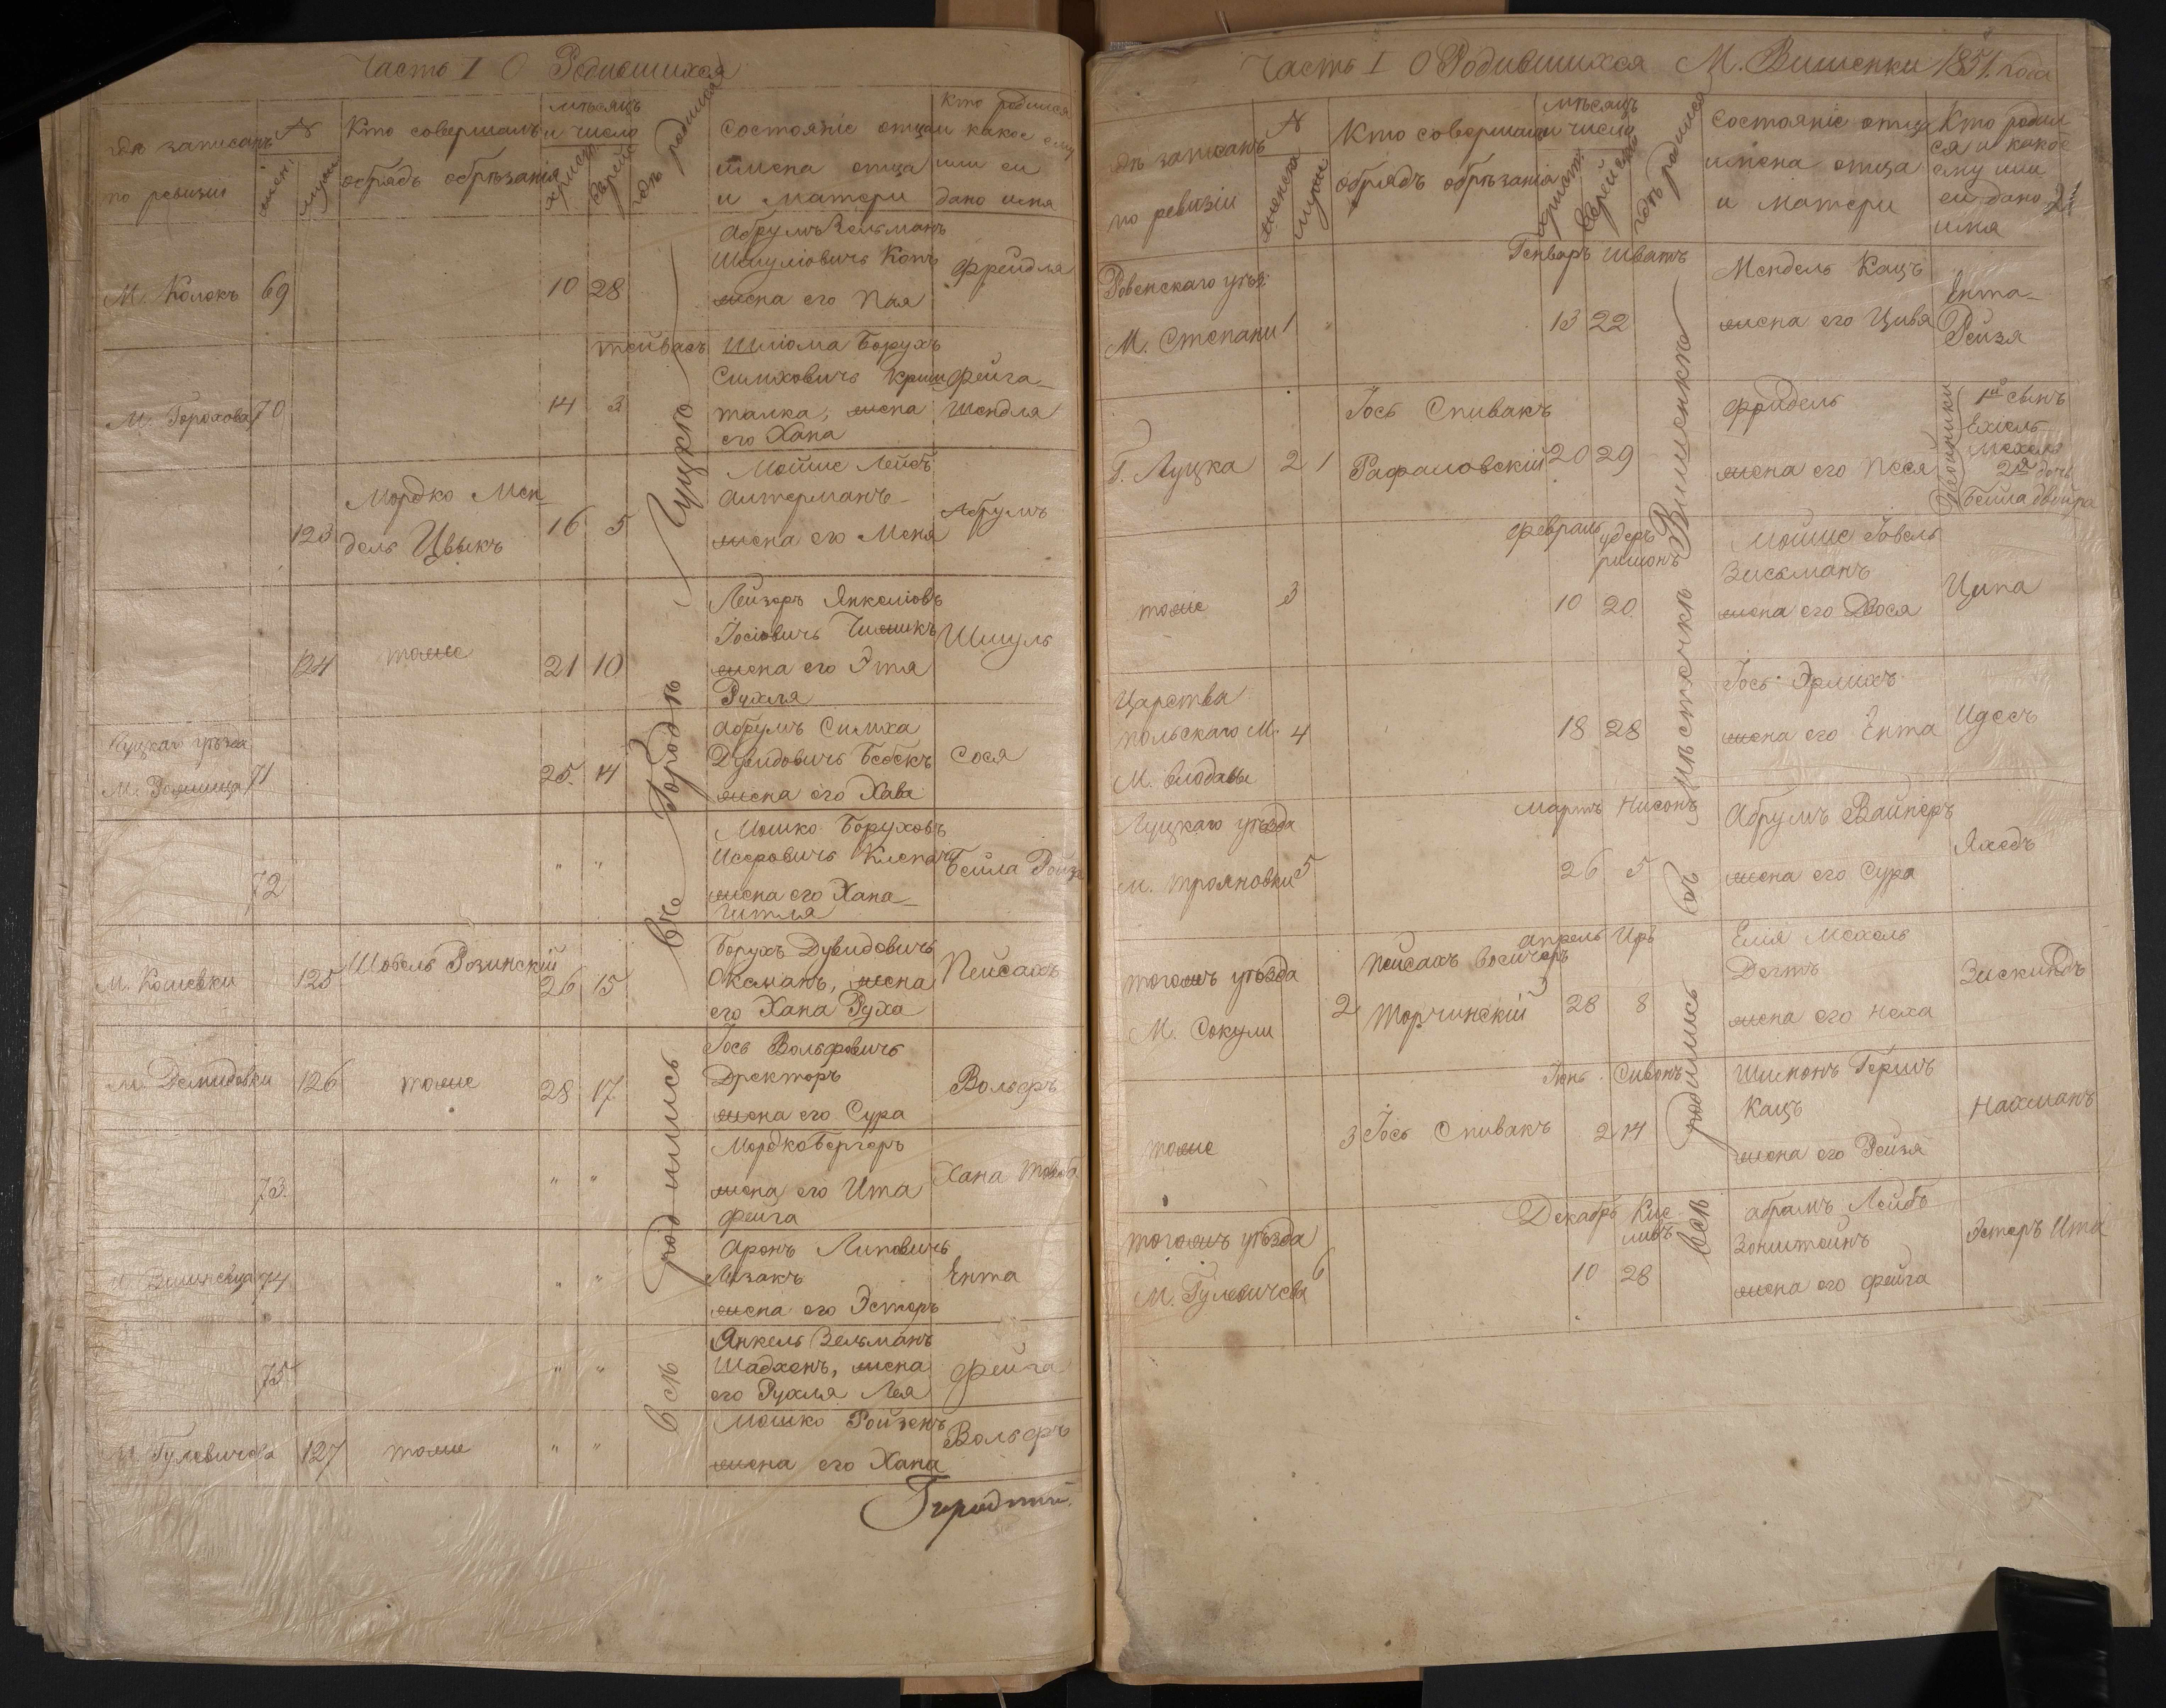 Часть I О Родившихся
гдѣ записанъ
по ревизіи
№
женс:
муж:
Кто совершалъ
обрядъ обрѣзанія
мѣсяцъ
и число
христ:
еврейс:
гдѣ родился
Состояніе отца
имена отца
и матери
Кто родился
и какое ему
или ей
дано имя
М. Колокъ 69 10 28
Абрумъ Зельманъ
Шмуліовичъ Копъ
жена его Пая
Фрейдля
тейвасъ
М. Горохова 70 14 3
Шліома Борухъ
Симховичъ Криш
талка, жена
его Хана
Фейга
Шендля
123 Мордко Мен
дель Цвыкъ 16 5
Мойше Лейбъ
Алтерманъ
жена его Меня
Абрумъ
124 тоже 21 10
Лейзоръ Янкеліовъ
Іосіовичъ Чижикъ
жена его Этя
Рухля
Шмуль
Луцкаго уѣзда
М. Рожища 71 25 14
Абрумъ Симха
Дувидовичъ Бебскъ
жена его Хава
Сося
72 " "
Мошко Боруховъ
Исеровичъ Клепачъ
жена его Хана
Гитля
Бейла Ройза
М. Колевки 125 Шобель Розинскій 26 15
Борухъ Дувидовичъ
Окаманъ, жена
его Хана Руха
Пейсахъ
М. Демидовки 126 тоже 28 17
Іось Вольфовичъ
Дректоръ
жена его Сура
Вольфъ
73 " "
Мордко Бергеръ
жена его Ита
Фейга
Хана Товба
М. Вишневца 74 " "
Аронъ Липовичъ
Лизакъ
жена его Эстеръ
Ента
75 " "
Янкель Зельманъ
Шадхенъ, жена
его Рухля Лея
Фейга
М. Гулевичева 127 тоже " "
Мошко Ройзенъ
жена его Хана
Вольфъ
Всѣ родились въ Городѣ Луцкѣ
Часть I О Родившихся М. Вишенки 1851. года
гдѣ записанъ
по ревизіи
№
женска
мужс:
Кто совершалъ
обрядъ обрѣзанія
мѣсяцъ
и число
христ:
еврейска
гдѣ родился
Состояніе отца
имена отца
и матери
Кто родил
ся и какое
ему или
ей дано
имя
Генваръ Шватъ
Ровенскаго уѣзд:
М. Степани 1 " 13 22
Мендель Кацъ
жена его Цивя
Ента
Рейзя
Г. Луцка 2 1
Іось Спивакъ
Рафаловскій 20 29
Фройдель
жена его Песя
Двойники
1й сынъ
Ехіель
Мехель
2я дочь
Бейла Двойра
Февраль Адеръ
ришонъ
тоже 3 10 20
Мойше Іовель
Зисьманъ
жена его Двося
Ципа
Царства
Польскаго М.
М. Влодавы 4 18 28
Іось Эрлихъ
жена его Ента
Идесъ
Мартъ Нисонъ
Луцкаго уѣзда
М. Трояновки 5 26 5
Абрумъ Вайнеръ
жена его Сура
Яхедъ
Апрель Иръ
тогожъ уѣзда
М. Сокули 2
Торчинскій 28 8
Елія Мехель
Дегтъ
жена его Неха
Зискиндъ
Іюнь Сивонъ
тоже 3 Іось Спивакъ 2 14
Шимонъ Гершъ
Кацъ
жена его Рейзя
Нахманъ
Декабрь Кис
ливъ
тогожъ уѣзда
М. Гулевичева 6 10 28
Абрамъ Лейбъ
Зонштейнъ
жена его Фейга
Эстеръ Ита
Всѣ родились въ мѣстечкѣ Вишенкѣ